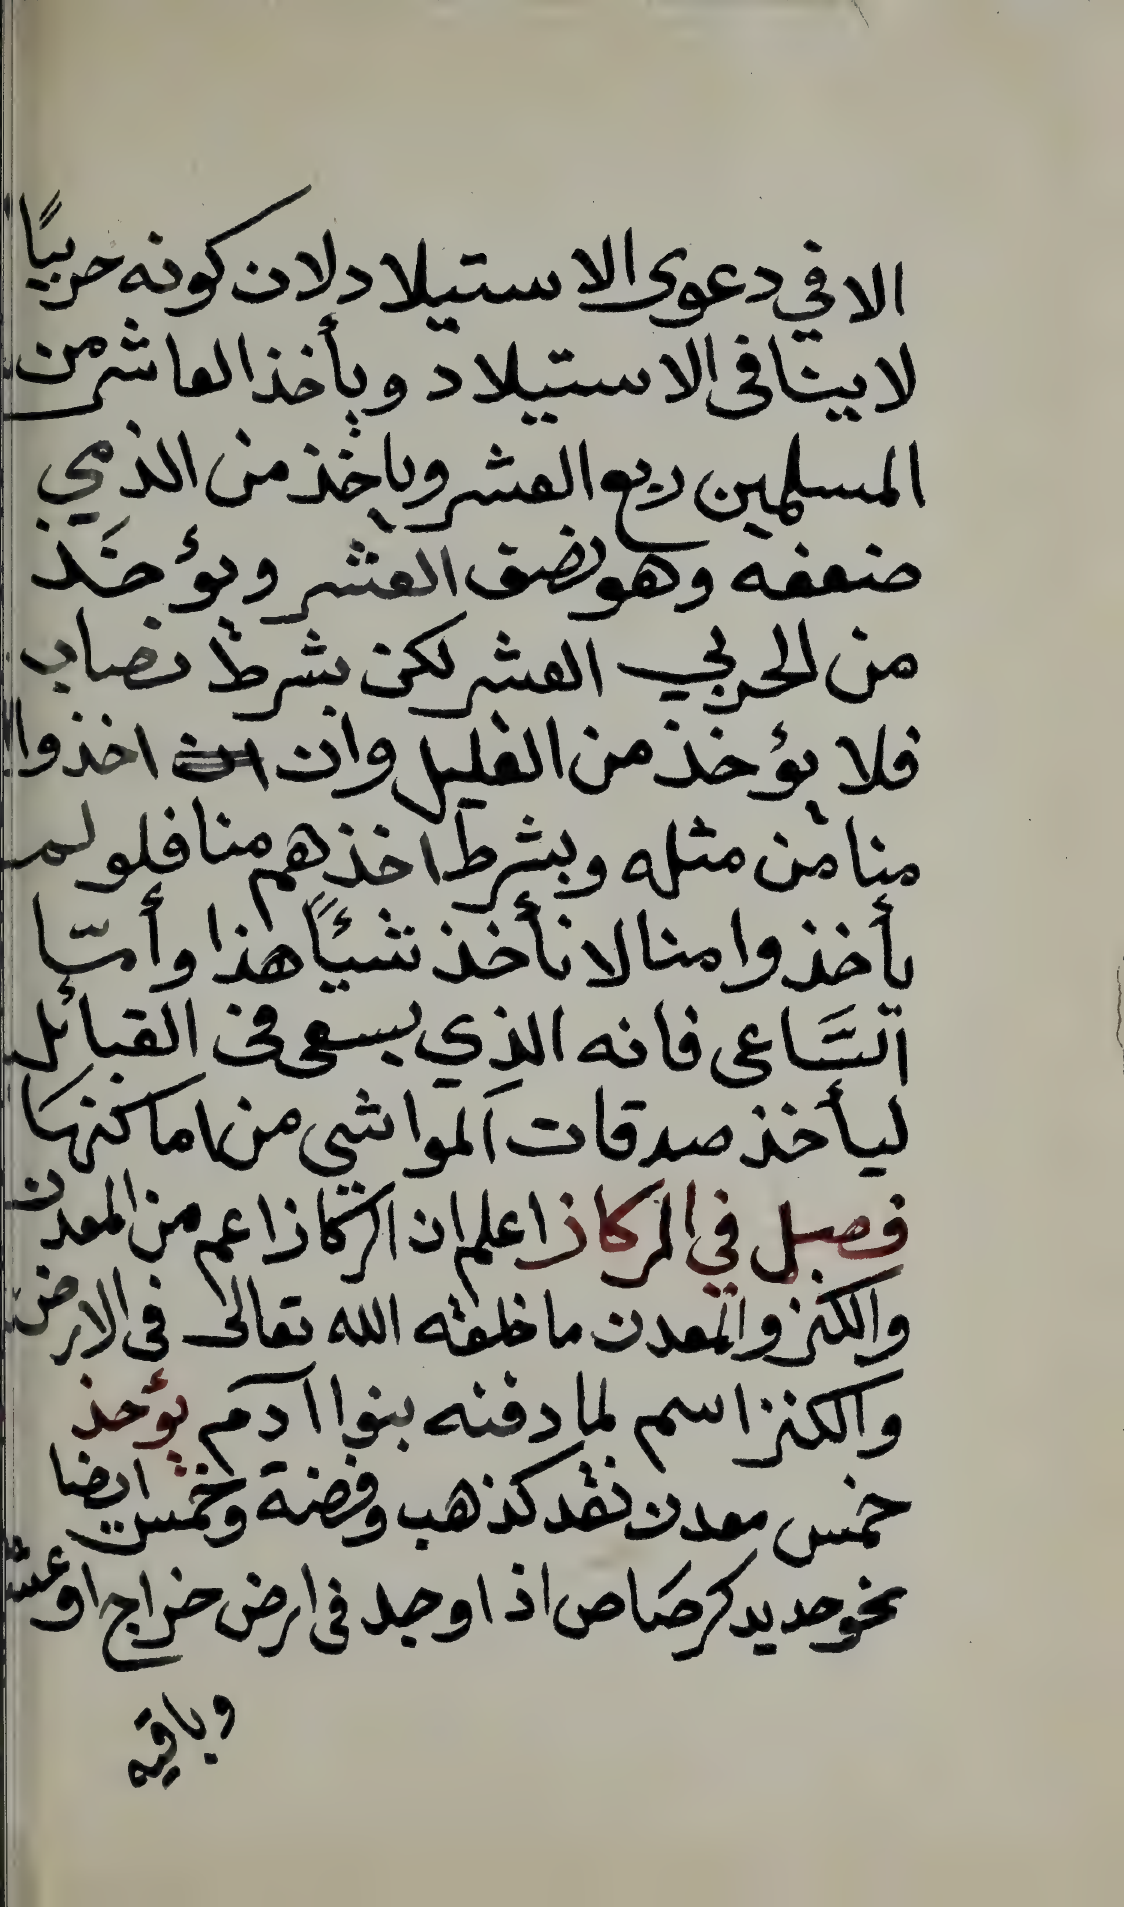 الا في دعوى الاستيلاد لان كونه حربيًا
لا ينافى الاستيلاد ويأخذ العاشر من
المسلمين ربع العشر وياخذ من الذمي
ضعفه وهو نصف العشر ويؤخَذ
من الحربي العشر لكن بشرط نصاب
فلا يؤخذ من القليل وان اخذوا
منا من مثله وبشرط اخذهم منا فلو لم
يأخذوا منا لا نأخذ شيئًا هذا وأمّا
السَّاعى فانه الذي يسعى فى القبائل
ليأخذ صدقات المواشي من اماكنهَا
فصل في الركاز اعلم ان الركاز اعم من المعدن
والكنز والمعدن ما خلقه الله تعالى فى الارض
والكنز اسم لما دفنه بنوا آدم يؤخذ
خمس معدن نقد كذهب وفضة وخمس ايضا
نحو حديد كرصاص اذا وجد فى ارض خراج او عشر
وباقيه